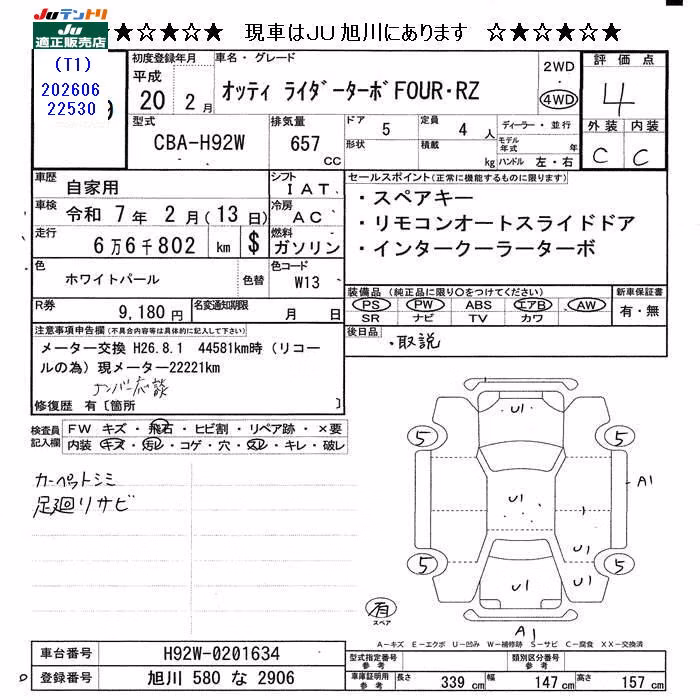 JUテントリ
JU
適正販売店
★☆★☆★☆ 現車はJU旭川にあります ☆★☆★☆★
(T1)
202606
22530
初度登録年月
平成
20 2 月
車名・グレード
オッティ ライダーターボFOUR・RZ
2WD
・
4WD
評価点
4
外装 内装
C C
型式
CBA-H92W
排気量
657
CC
ドア 5
形状
定員 4 人
積載 kg
ディーラー・並行
モデル年式 年
ハンドル 左・右
車歴 自家用
シフト IAT
車検 令和 7 年 2 月 (13 日)
冷房 AC
走行 6 万 6 千 802 km $
燃料 ガソリン
色 ホワイトパール 色替
色コード W13
R券 9,180 円
名変通知期限 月 日
セールスポイント(正常に機能するものに限ります)
・スペアキー
・リモコンオートスライドドア
・インタークーラーターボ
装備品 (純正品に限り○をつけてください)
PS PW ABS エアB AW
SR ナビ TV カワ
新車保証書
有・無
後日品
・取説
注意事項申告欄(不具合内容等は具体的に記入して下さい)
メーター交換 H26.8.1 44581km時(リコー
ルの為)現メーター22221km
ナンバー応談
修復歴 有〔箇所 〕
検査員記入欄
FW キズ・飛石・ヒビ割・リペア跡・×要
内装 キズ・汚レ・コゲ・穴・スレ・キレ・破レ
カーペットシミ
足廻リサビ
U1
5 5
A1
U1
U1
5 5
U1 U1
有
スペア
A1
A-キズ E-エクボ U-凹み W-補修跡 S-サビ C-腐食 XX-交換済
車台番号 H92W-0201634
登録番号 旭川 580 な 2906
型式指定番号 参考
類別区分番号 参考
車庫証明用 参考
長さ 339 cm 幅 147 cm 高さ 157 cm